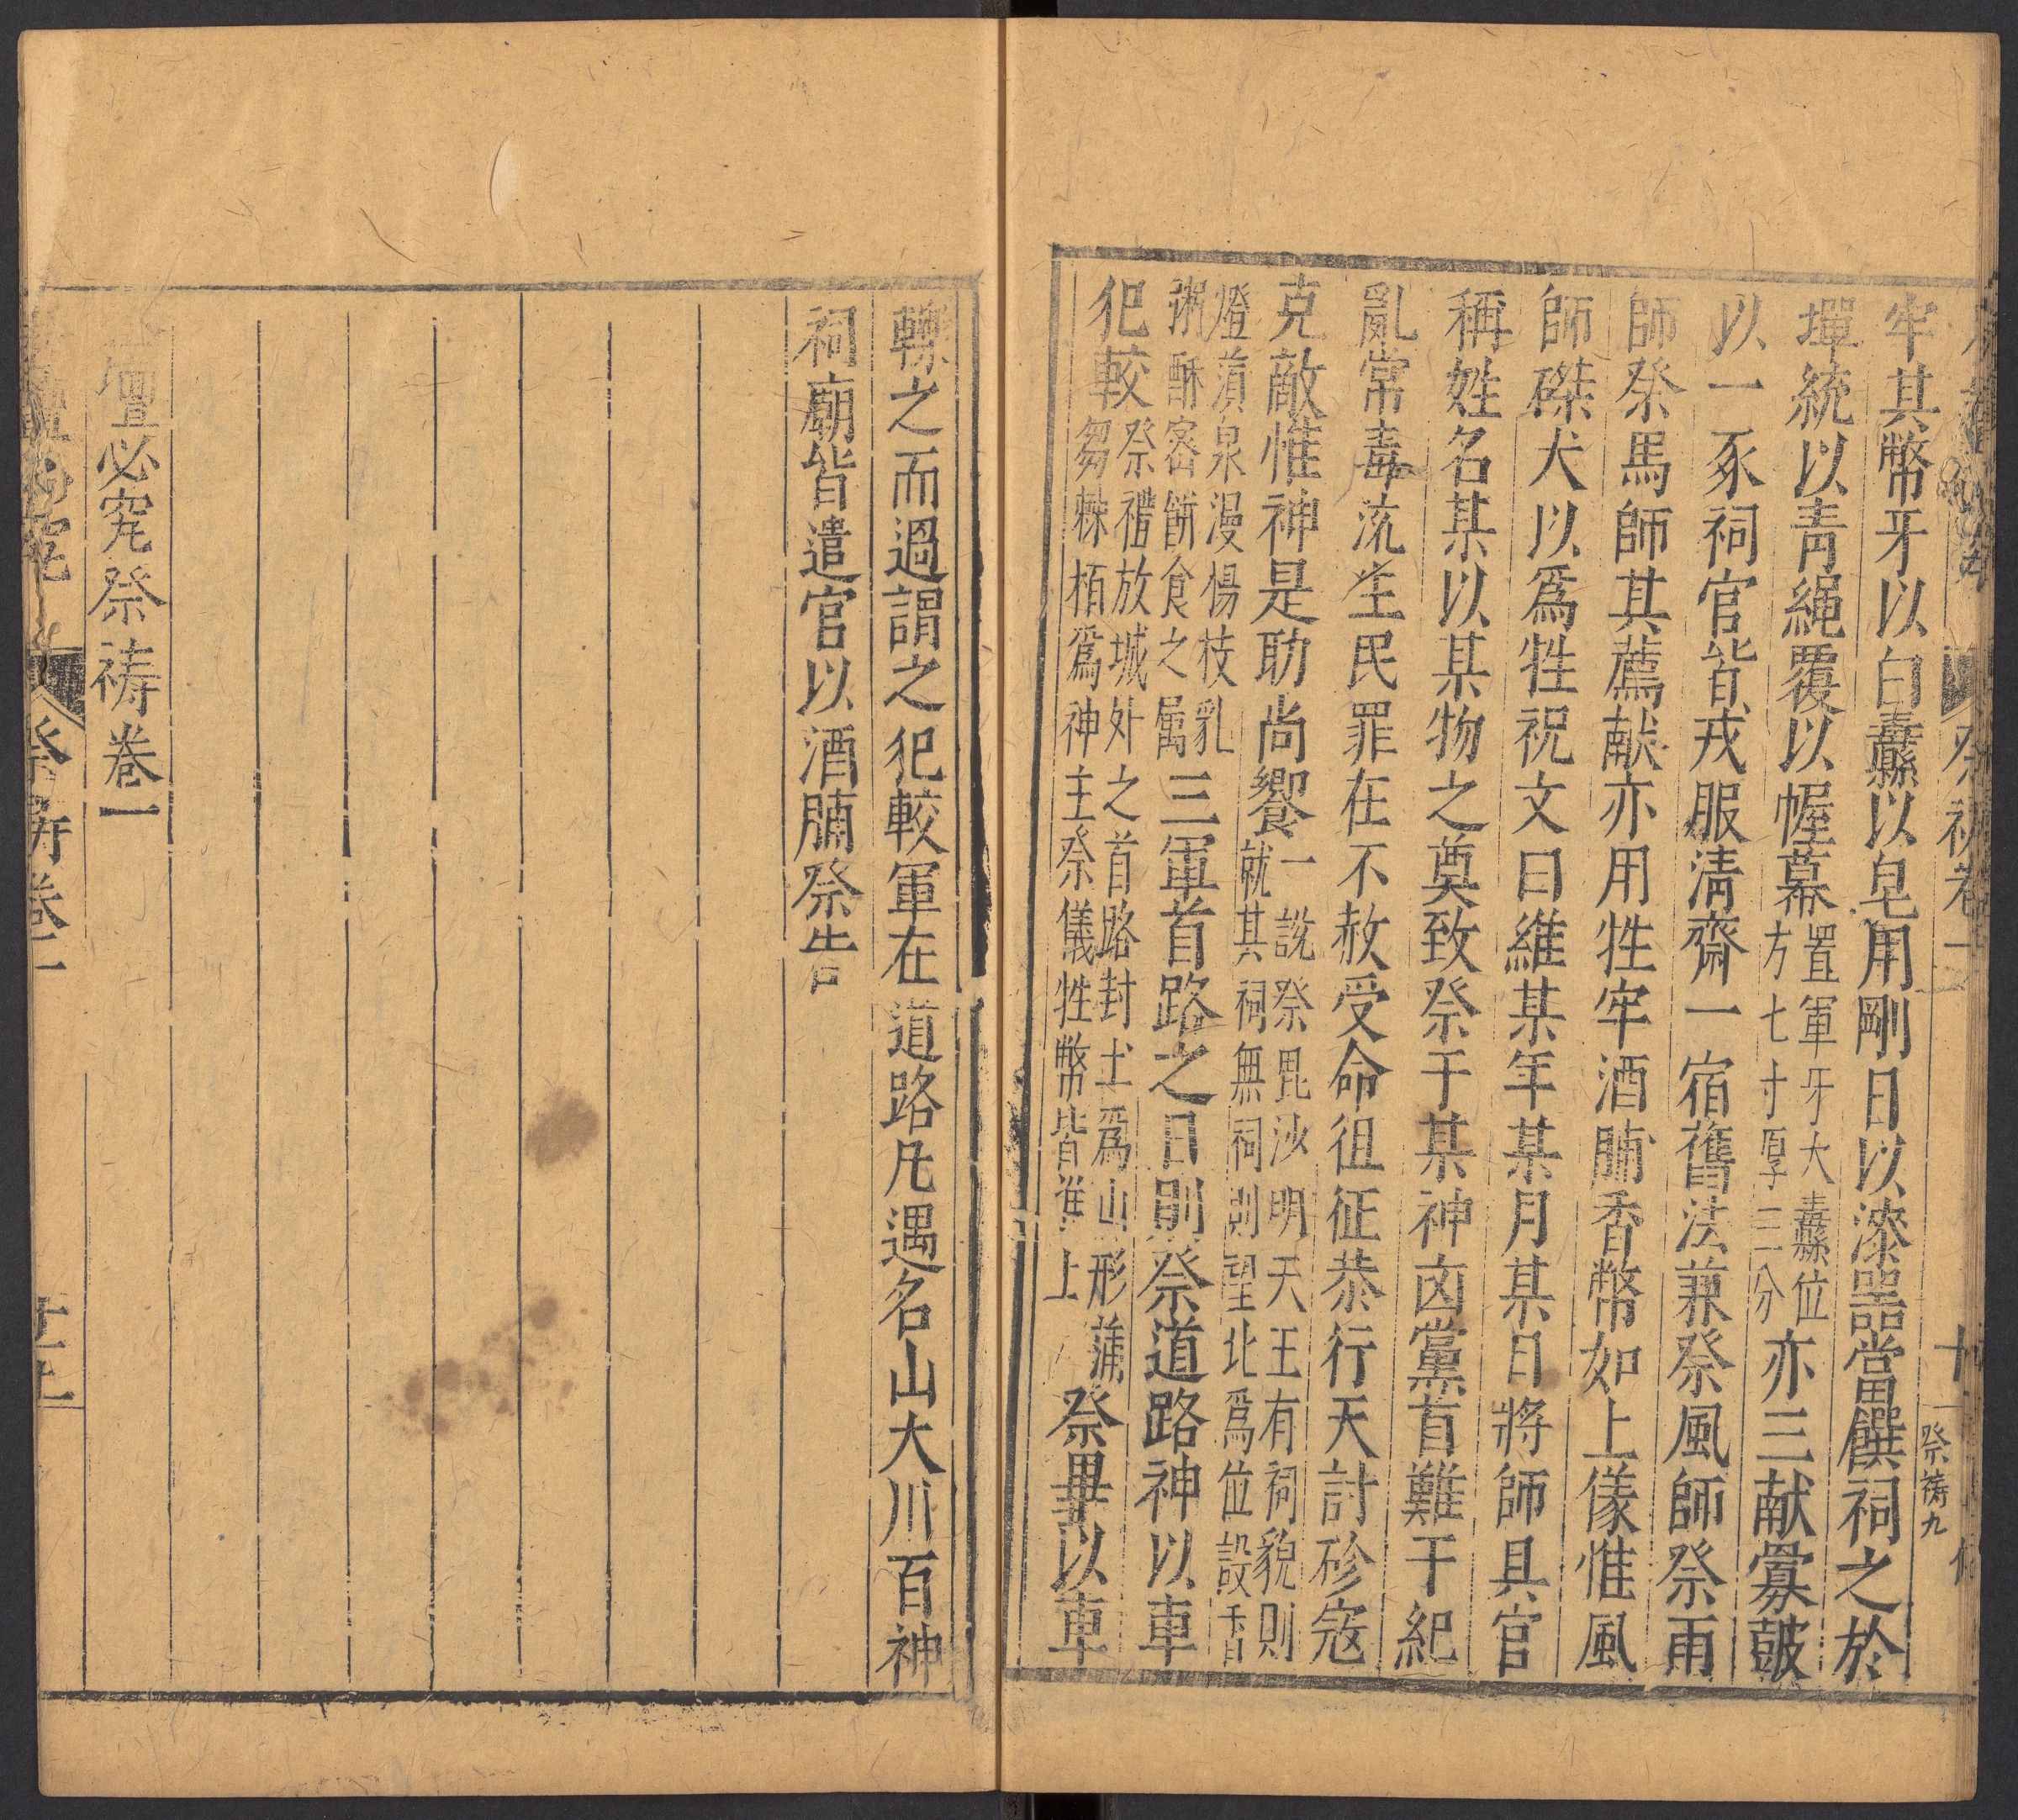 祭禱卷一
十
祭禱九
牢其幣牙以白纛以皂用剛日以漆器當饌祠之於
墠統以青繩覆以幄幕置軍牙大纛位方七寸厚三分亦三献爨皷
以一豕祠官皆戎服清齋一宿舊法兼祭風師祭雨
師祭馬師其薦献亦用牲牢酒脯香幣如上儀惟風
師磔犬以爲牲祝文曰維某年某月某日將師具官
稱姓名某以某物之奠致祭于某神凶黨首難干紀
亂常毒流生民罪在不赦受命徂征恭行天討殄寇
克敵惟神是助尚饗一說祭毘沙明天王有祠貌則就其祠無祠則望北爲位設香
燈湏泉漫楊枝乳粥酥宻餅食之属三軍首路之日則祭道路神以車
犯較祭禮放城外之首路封土爲山形蒲芻棘栢爲神主祭儀牲幣皆準上祭畢以車
轢之而過謂之犯較軍在道路凡遇名山大川百神
祠廟皆遣官以酒脯祭告
壇必究祭禱卷一
祭禱卷一